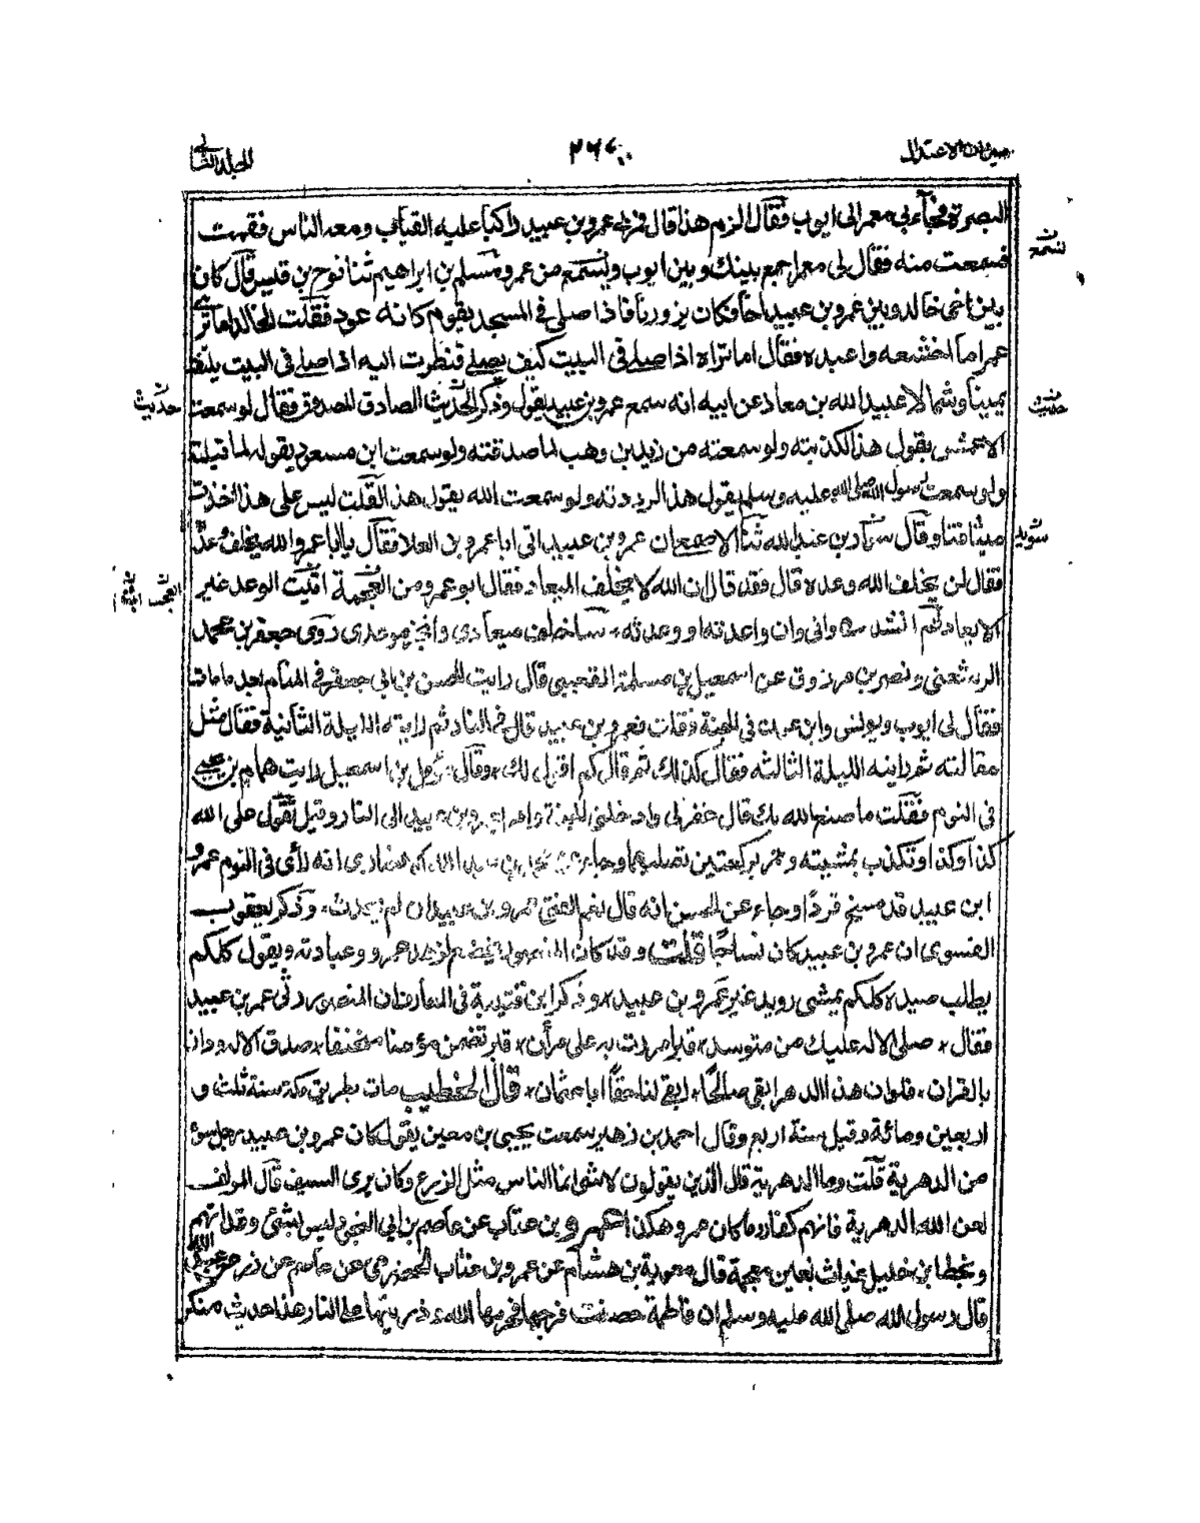 ميزان الاعتدال
٢٦٤
المجلد الثانى
البصرة فجآء بى معمر الى ايوب فقال الزم هذا قال فمر به عمرو بن عبيد راكبا عليه القباب ومعه الناس فقمت
فسمعت منه فقال لى معمر اجمع بينك وبين ايوب وتسمع من عمرو مسلم بن ابراهيم ثنا نوح بن قيس قال كان
بين اخى خالد وبين عمرو بن عبيد اخآ فكان يزورنا فاذا صلى فى المسجد يقوم كانه عود فقلت لخالد اما ترى
عمرا ما اخشعه واعبده فقال اما تراه اذا صلى فى البيت كيف يصلى فنظرت اليه اذا صلى فى البيت يلتفت
يمينا وشمالا عبيد الله بن معاذ عن ابيه انه سمع عمرو بن عبيد يقول وذكر حديث الصادق المصدوق فقال لو سمعت
الاعمش يقول هذا لكذبته ولو سمعته من زيد بن وهب لما صدقته ولو سمعت ابن مسعود يقوله لما قبلته
ولو سمعت رسول الله صلى الله عليه وسلم يقول هذا لرددته ولو سمعت الله يقول هذا لقلت ليس على هذا اخذت
ميثاقنا وقال سوار بن عبد الله ثنا الاصمعى ان عمرو بن عبيد اتى ابا عمرو بن العلا فقال يا ابا عمرو الله يخلف وعده
فقال لن يخلف الله وعده قال فقد قال ان الله لا يخلف الميعاد فقال ابو عمرو من العجمة اتيت الوعد غير
الايعاد ثم انشد وانى وان واعدته او وعدته سآخلف ميعادى وانجز موعدى روى جعفر بن محمد
الرسعنى ونصر بن مرزوق عن اسمعيل بن مسلمة القعنبى قال رايت الحسن بن ابى جعفر فى المنام بعد ما مات
فقال لى ايوب ويونس وابن عون فى الجنة فقلت فعمرو بن عبيد قال فى النار ثم رايته الليلة الثانية فقال مثل
مقالته ثم رايته الليلة الثالثه فقال كذلك ثم قال كم اقول لك وقال مؤمل بن اسمعيل رايت همام بن يحيى
فى النوم فقلت ما صنع الله بك قال غفر لى وادخلنى الجنة وامر بعمرو بن عبيد الى النار وقيل تقول على الله
كذا وكذا وتكذب بمشيته وتمر بركعتين تصليهما وجا عن انه رأى فى النوم عمرو
ابن عبيد قد مسخ قردا وجاء عن الحسن انه قال نعم الفتى عمرو بن عبيد ان لم يحدث وذكر يعقوب
الفسوى ان عمرو بن عبيد كان نساجا قلت وقد كان المنصور يخضع لزهد عمرو وعبادته ويقول كلكم
يطلب صيد كلكم يمشى رويد غير عمرو بن عبيد وذكر ابن قتيبة فى المعارف ان المنصور رثى عمرو بن عبيد
فقال صلى الاله عليك من متوسد قبرا مررت به على مران قبر تضمن مؤمنا متحنفا صدق الاله ودان
بالقران فلوان هذا الدهر ابقى صالحا ابقى لنا حقا ابا عثمان قال الخطيب مات بطريق مكة سنة ثلث و
اربعين ومائة وقيل سنة اربع وقال احمد بن زهير سمعت يحيى بن معين يقول كان عمرو بن عبيد رجل سؤ
من الدهرية قلت وما الدهرية قال الذين يقولون لا شئ انما الناس مثل الزرع وكان يرى السيف قال المولف
لعن الله الدهرية فانهم كفار وما كان عمرو هكذا عمرو بن عتاب عن عاصم بن ابى النجود ليس بشئ وقد اتهم
وخطا بن خليل غياث بغين معجمة قال معوية بن هشام عن عمرو بن غياث الحضرمى عن عاصم عن زر عن عبد الله
قال رسول الله صلى الله عليه وسلم ان فاطمة حصنت فرجها فحرمها الله وذريتها على النار هذا حديث منكر
لتسمع
حديث
حديث
سويد
العجمة